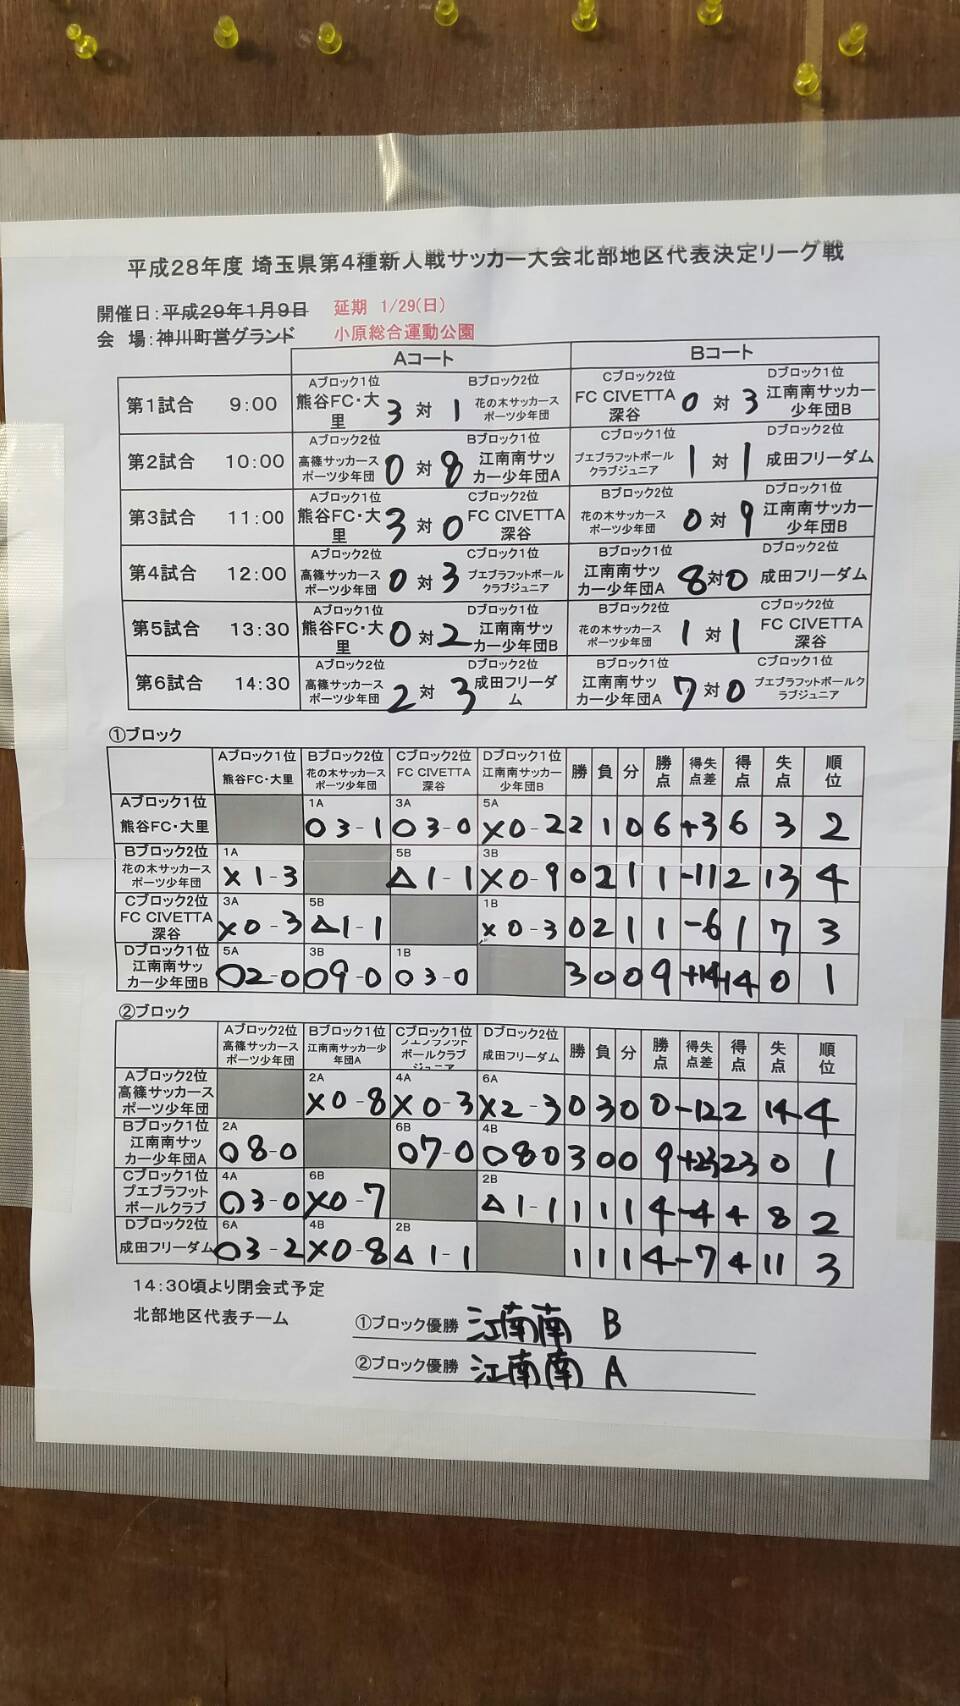 平成28年度 埼玉県第4種新人戦サッカー大会北部地区代表決定リーグ戦
開催日:平成29年1月9日 延期 1/29(日)
会 場:神川町営グランド 小原総合運動公園
Aコート Bコート
第1試合 9:00 Aブロック1位 熊谷FC・大里 3 対 1 Bブロック2位 花の木サッカースポーツ少年団 Cブロック2位 FC CIVETTA 深谷 0 対 3 Dブロック1位 江南南サッカー少年団B
第2試合 10:00 Aブロック2位 高篠サッカースポーツ少年団 0 対 8 Bブロック1位 江南南サッカー少年団A Cブロック1位 プエブラフットボールクラブジュニア 1 対 1 Dブロック2位 成田フリーダム
第3試合 11:00 Aブロック1位 熊谷FC・大里 3 対 0 Cブロック2位 FC CIVETTA 深谷 Bブロック2位 花の木サッカースポーツ少年団 0 対 9 Dブロック1位 江南南サッカー少年団B
第4試合 12:00 Aブロック2位 高篠サッカースポーツ少年団 0 対 3 Cブロック1位 プエブラフットボールクラブジュニア Bブロック1位 江南南サッカー少年団A 8 対 0 Dブロック2位 成田フリーダム
第5試合 13:30 Aブロック1位 熊谷FC・大里 0 対 2 Dブロック1位 江南南サッカー少年団B Bブロック2位 花の木サッカースポーツ少年団 1 対 1 Cブロック2位 FC CIVETTA 深谷
第6試合 14:30 Aブロック2位 高篠サッカースポーツ少年団 2 対 3 Dブロック2位 成田フリーダム Bブロック1位 江南南サッカー少年団A 7 対 0 Cブロック1位 プエブラフットボールクラブジュニア
①ブロック
Aブロック1位 熊谷FC・大里 Bブロック2位 花の木サッカースポーツ少年団 Cブロック2位 FC CIVETTA 深谷 Dブロック1位 江南南サッカー少年団B 勝 負 分 勝点 得失点差 得点 失点 順位
Aブロック1位 熊谷FC・大里 1A ○3-1 3A ○3-0 5A ×0-2 2 1 0 6 +3 6 3 2
Bブロック2位 花の木サッカースポーツ少年団 1A ×1-3 5B △1-1 3B ×0-9 0 2 1 1 -11 2 13 4
Cブロック2位 FC CIVETTA 深谷 3A ×0-3 5B △1-1 1B ×0-3 0 2 1 1 -6 1 7 3
Dブロック1位 江南南サッカー少年団B 5A ○2-0 3B ○9-0 1B ○3-0 3 0 0 9 +14 14 0 1
②ブロック
Aブロック2位 高篠サッカースポーツ少年団 Bブロック1位 江南南サッカー少年団A Cブロック1位 プエブラフットボールクラブジュニア Dブロック2位 成田フリーダム 勝 負 分 勝点 得失点差 得点 失点 順位
Aブロック2位 高篠サッカースポーツ少年団 2A ×0-8 4A ×0-3 6A ×2-3 0 3 0 0 -12 2 14 4
Bブロック1位 江南南サッカー少年団A 2A ○8-0 6B ○7-0 4B ○8 0 3 0 0 9 +23 23 0 1
Cブロック1位 プエブラフットボールクラブ 4A ○3-0 6B ×0-7 2B △1-1 1 1 1 4 -4 4 8 2
Dブロック2位 成田フリーダム 6A ○3-2 4B ×0-8 2B △1-1 1 1 1 4 -7 4 11 3
14:30頃より閉会式予定
北部地区代表チーム ①ブロック優勝 江南南 B
②ブロック優勝 江南南 A